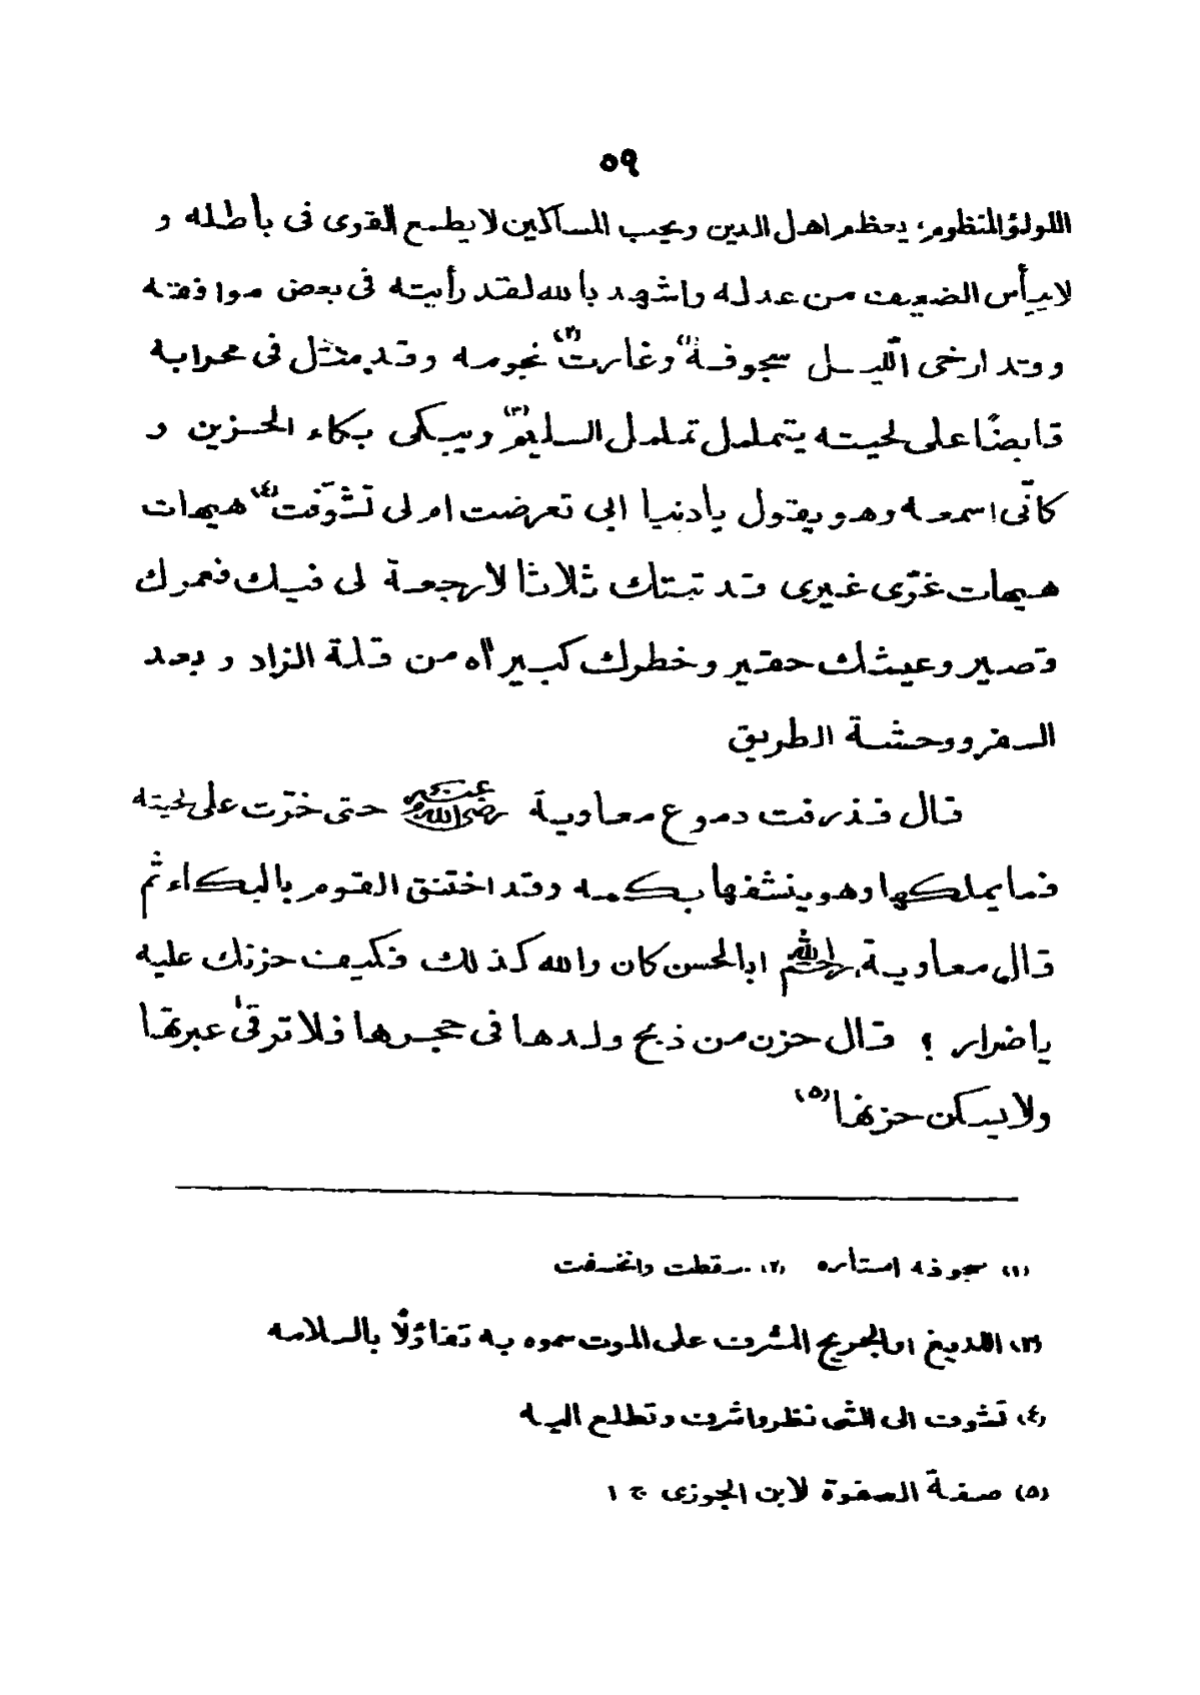 ٥٩
اللولؤ المنظوم، يعظم اهل الدين ويحب المساكين لا يطمع القوى فى باطله و
لا ييأس الضعيف من عدله واشهد بالله لقد رأيته فى بعض موافقته
وقد ارخى الليل سجوفة(١) وغارت(٢) نجومه وقد مثل فى محرابة
قابضًا على لحيته يتململ تململ السليم(٣) ويبكى بكاء الحزين و
كأنّى اسمعه وهو يقول يا دنيا ابي تعرضت ام لى تشوّفت(٤) هيهات
هيهات غرّى غيرى قد تبتك ثلاثا لا رجعة لى فيك فعمرك
قصير وعيشك حقير وخطرك كبير آه من قلة الزاد و بعد
السفر ووحشة الطريق
قال فذرفت دموع معاوية رضى الله عنه حتى خرّت على لحيته
فما يملكها وهو ينشفها بكمه وقد اختنق القوم بالبكاء ثم
قال معاوية، رحم الله ابا الحسن كان والله كذلك فكيف حزنك عليه
يا ضرار ؟ قال حزن من ذبح ولدها فى حجرها فلا ترقى عبرتها
ولا يسكن حزنها(٥)
(١) سجوفه استاره (٢) سقطت وانخسفت
(٣) اللديغ او الجريح المشرف على الموت سموه به تفاؤلًا بالسلامه
(٤) تشوف الى الشى نظر واشرف وتطلع اليه
(٥) صفة الصفوة لابن الجوزى ج ١